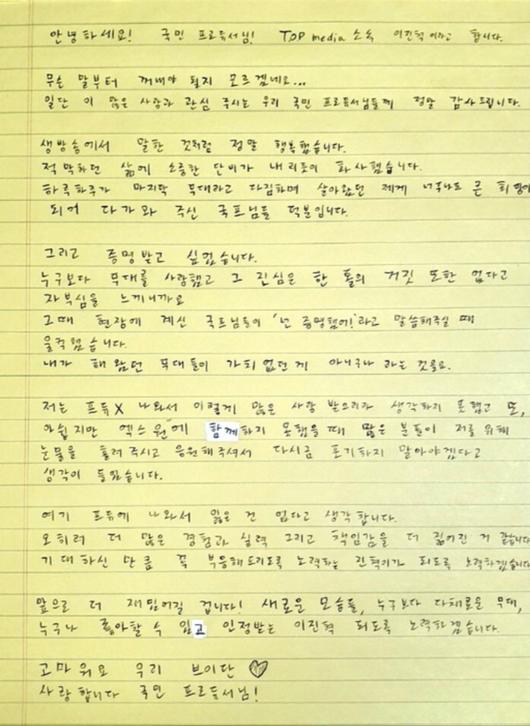 안녕하세요! 국민 프로듀서님! TOP media 소속 이진혁이라고 합니다.
무슨 말부터 꺼내야 될지 모르겠네요...
일단 이 많은 사랑과 관심 주시는 우리 국민 프로듀서님들께 정말 감사드립니다.
생방송에서 말한 것처럼 정말 행복했습니다.
적막하던 삶에 소중한 단비가 내리듯이 화사했습니다.
하루하루가 마지막 무대라고 다짐하며 살아왔던 제게 너무나도 큰 희망이
되어 다가와 주신 국프님들 덕분입니다.
그리고 증명받고 싶었습니다.
누구보다 무대를 사랑했고 그 진심은 한 톨의 거짓 또한 없다고
자부심을 느끼니까요
그때 현장에 계신 국프님들이 '넌 증명했어!'라고 말씀해주실 때
울컥했습니다.
내가 해 왔던 무대들이 가치없던게 아니구나 라는 것을요.
저는 프듀X 나와서 이렇게 많은 사랑 받으리라 생각하지 못했고 또,
아쉽지만 엑스원에 함께하지 못했을 때 많은 분들이 저를 위해
눈물을 흘려 주시고 응원해주셔서 다시금 포기하지 말아야겠다고
생각이 들었습니다.
여기 프듀에 나와서 잃은 건 없다고 생각합니다.
오히려 더 많은 경험과 실력 그리고 책임감을 더 짊어진 거 같습니다
기대하신 만큼 꼭 부응해드리도록 노력하는 진혁이가 되도록 노력하겠습니다
앞으로 더 재밌어질 겁니다! 새로운 모습들, 누구보다 다채로운 무대,
누구나 좋아할 수 있고 인정받는 이진혁 되도록 노력하겠습니다.
고마워요 우리 브이단 ♡
사랑합니다 국민 프로듀서님!